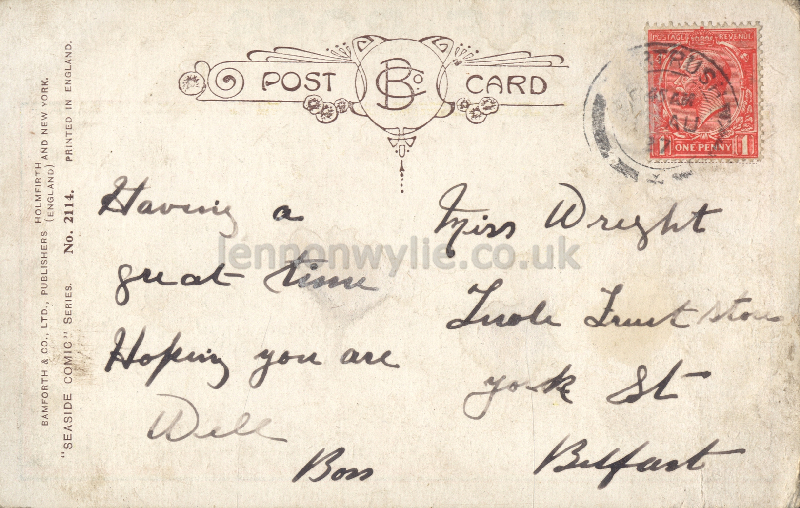 BAMFORTH & CO., LTD., PUBLISHERS HOLMFIRTH (ENGLAND) AND NEW YORK.
"SEASIDE COMIC" SERIES. No. 2114. PRINTED IN ENGLAND.
POST CARD
B Co
POSTAGE REVENUE
ONE PENNY 1
AU
Having a
great time
Hoping you are
Well
Boss
Miss Wright
Fruit Stores
York St
Belfast
lennonwylie.co.uk